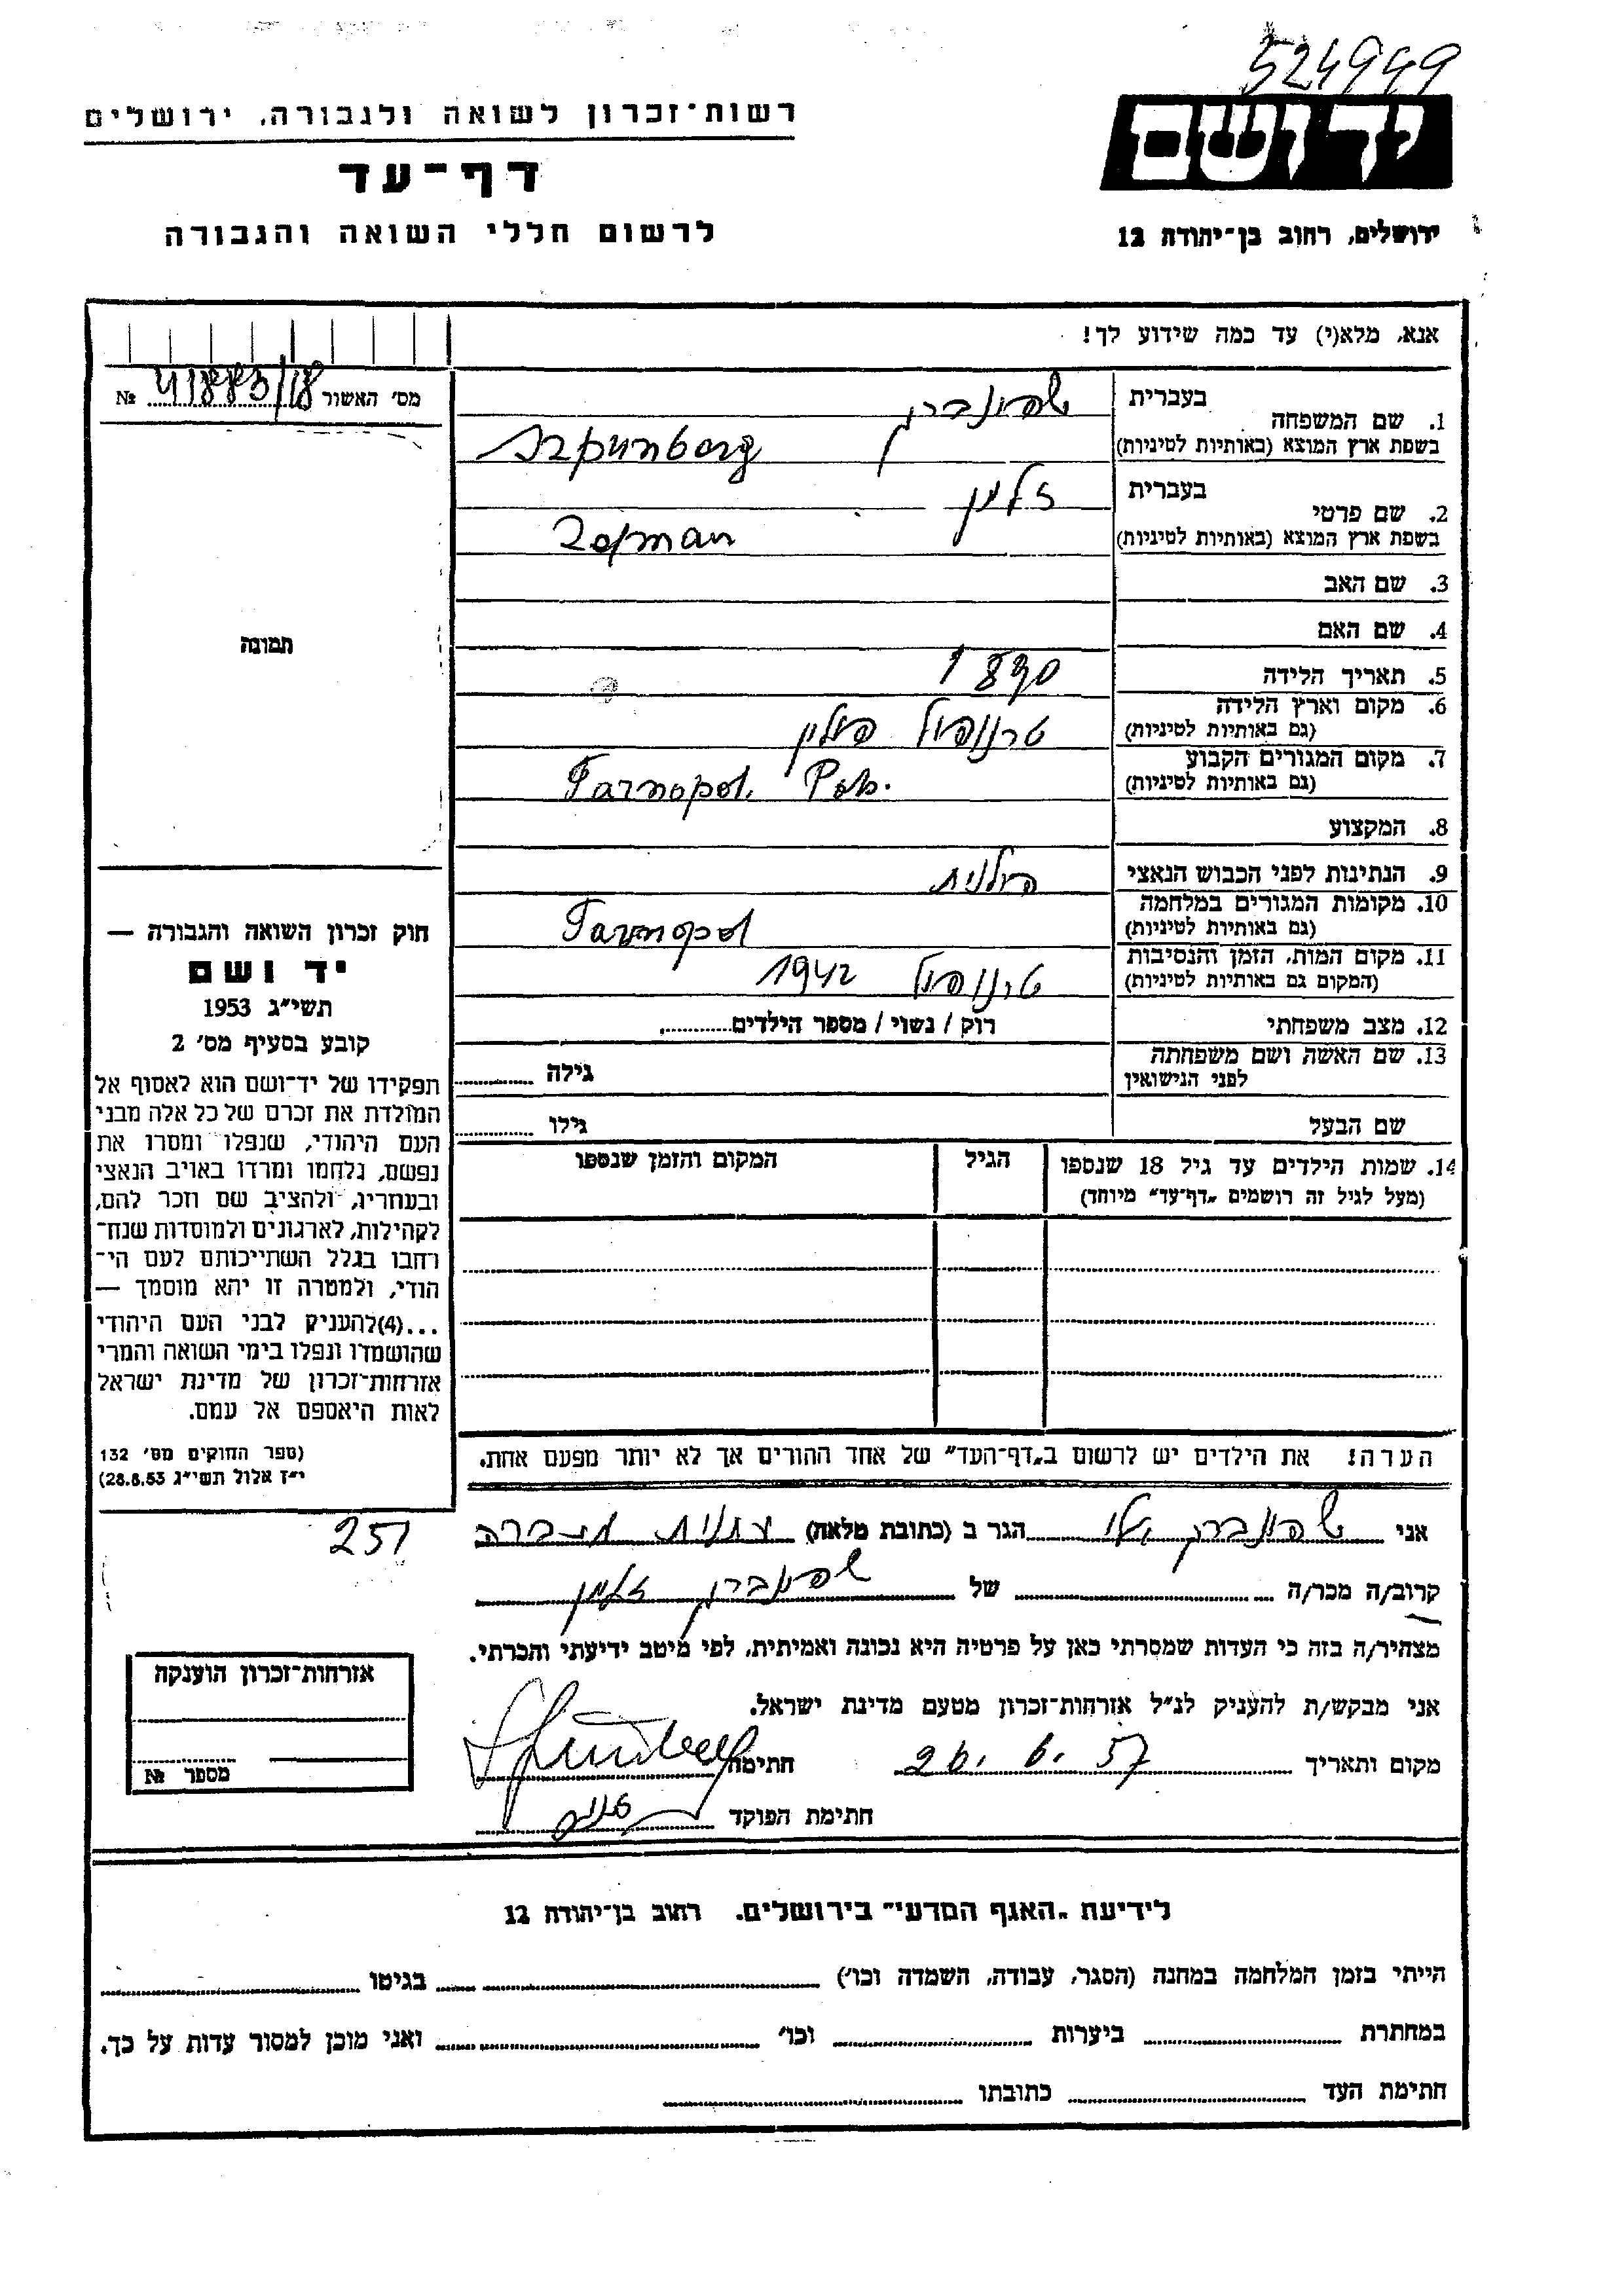 524949
רשות־זכרון לשואה ולגבורה, ירושלים
יד ושם
דף-עד
לרשום חללי השואה והגבורה
ירושלים, רחוב בן־יהודה 12
אנא, מלא(י) עד כמה שידוע לך!
מס' האשור 41883/18 №
תמונה
בעברית שפונברג
1. שם המשפחה
בשפת ארץ המוצא (באותיות לטיניות) Szpunberg
בעברית זלמן
2. שם פרטי
בשפת ארץ המוצא (באותיות לטיניות) Zelman
3. שם האב
4. שם האם
5. תאריך הלידה 1890
6. מקום וארץ הלידה טרנופול פולין
(גם באותיות לטיניות)
7. מקום המגורים הקבוע Tarnopol Pol.
(גם באותיות לטיניות)
8. המקצוע
9. הנתינות לפני הכבוש הנאצי פולנית
10. מקומות המגורים במלחמה Tarnopol
(גם באותיות לטיניות)
11. מקום המות, הזמן והנסיבות טרנופול 1942
(המקום גם באותיות לטיניות)
12. מצב משפחתי רוק / נשוי / מספר הילדים
13. שם האשה ושם משפחתה
לפני הנישואין גילה
שם הבעל גילו
14. שמות הילדים עד גיל 18 שנספו הגיל המקום והזמן שנספו
(מעל לגיל זה רושמים "דף־עד" מיוחד)
חוק זכרון השואה והגבורה —
יד ושם
תשי"ג 1953
קובע בסעיף מס' 2
תפקידו של יד־ושם הוא לאסוף אל
המולדת את זכרם של כל אלה מבני
העם היהודי, שנפלו ומסרו את
נפשם, נלחמו ומרדו באויב הנאצי
ובעוזריו, ולהציב שם וזכר להם,
לקהילות, לארגונים ולמוסדות שנח־
רחבו בגלל השתייכותם לעם הי־
הודי, ולמטרה זו יהא מוסמך —
...(4)להעניק לבני העם היהודי
שהושמדו ונפלו בימי השואה והמרי
אזרחות־זכרון של מדינת ישראל
לאות היאספם אל עמם.
(ספר החוקים מס' 132
י"ז אלול תשי"ג 28.8.53)
הערה! את הילדים יש לרשום ב"דף־העד" של אחד ההורים אך לא יותר מפעם אחת.
251
אני שפונברג הגר ב (כתובת מלאה)
קרוב/ה מכר/ה של שפונברג זלמן
מצהיר/ה בזה כי העדות שמסרתי כאן על פרטיה היא נכונה ואמיתית, לפי מיטב ידיעתי והכרתי.
אני מבקש/ת להעניק לנ"ל אזרחות־זכרון מטעם מדינת ישראל.
מקום ותאריך 26. 6. 57 חתימה
חתימת הפוקד
אזרחות־זכרון הוענקה
מספר №
לידיעת "האגף המדעי" בירושלים, רחוב בן־יהודה 12
הייתי בזמן המלחמה במחנה (הסגר, עבודה, השמדה וכו') בגיטו
במחתרת ביערות וכו' ואני מוכן למסור עדות על כך.
חתימת העד כתובתו